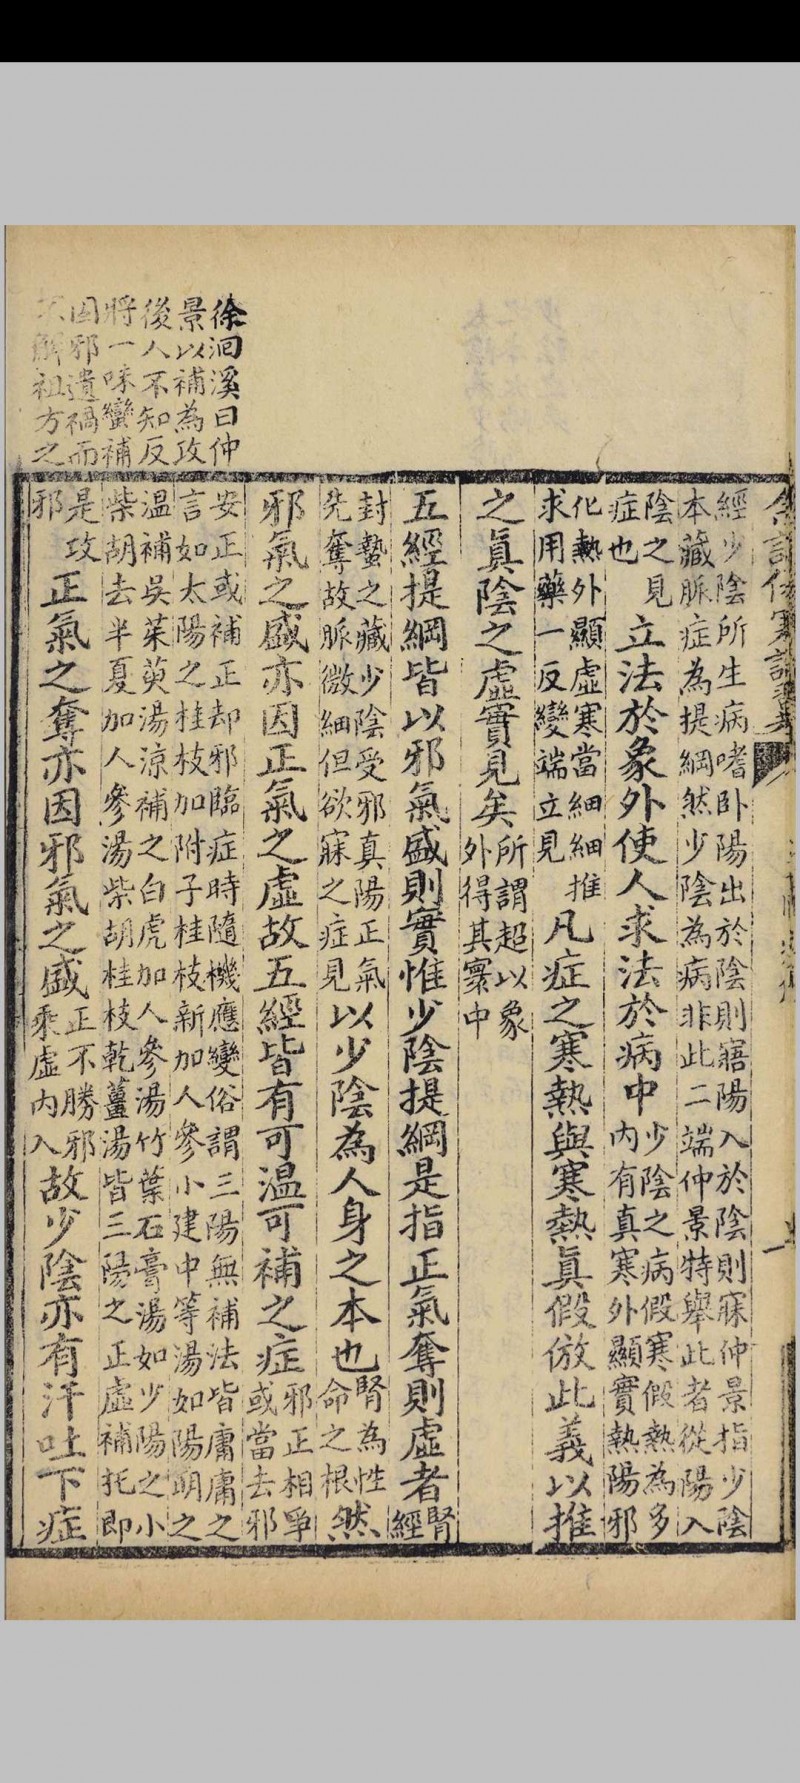 徐洄溪曰仲
景以補為攻
後人不知反
將一味蠻補
因邪遺禍而
不解祖方之
經少陰所生病嗜卧陽出於陰則寤陽入於陰則寐仲景指少陰
本藏脈症為提綱然少陰為病非此二端仲景特舉此者從陽入
陰之見症也立法於象外使人求法於病中少陰之病假寒假熱為多內有真寒外顯實熱陽邪
化熱外顯虛寒當細細推求用藥一反變端立見凡症之寒熱與寒熱眞假倣此義以推
之眞陰之虛實見矣所謂超以象外得其寰中
五經提綱皆以邪氣盛則實惟少陰提綱是指正氣奪則虛者腎經
封蟄之藏少陰受邪真陽正氣先奪故脈微細但欲寐之症見以少陰為人身之本也腎為性命之根然
邪氣之盛亦因正氣之虛故五經皆有可溫可補之症邪正相爭或當去邪
安正或補正却邪臨症時隨機應變俗謂三陽無補法皆庸庸之
言如太陽之桂枝加附子桂枝新加人參小建中等湯如陽明之
溫補吳茱萸湯涼補之白虎加人參湯竹葉石膏湯如少陽之小
柴胡去半夏加人參湯柴胡桂枝乾薑湯皆三陽之正虛補托即
是攻邪正氣之奪亦因邪氣之盛正不勝邪乘虛內入故少陰亦有汗吐下症